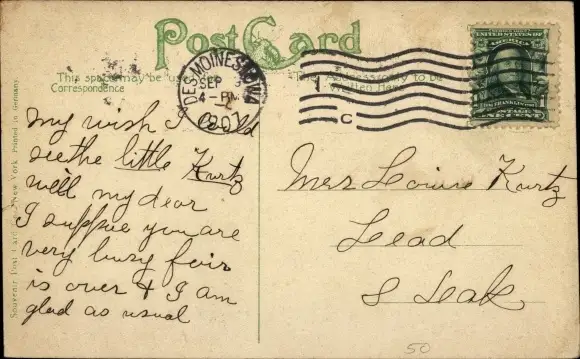 Post Card
This space may be used
Correspondence
The Address only to be
Written Here
DES MOINES, IOWA
SEP
4 - PM
1907
1
C
UNITED STATES OF
AMERICA
FRANKLIN
ONE CENT
my wish I could
see the little Kurtz
well my dear
I suppose you are
very busy fair
is over & I am
glad as usual
Mrs Louise Kurtz
Lead
S Dak
50
Souvenir Post Card New York Printed in Germany.